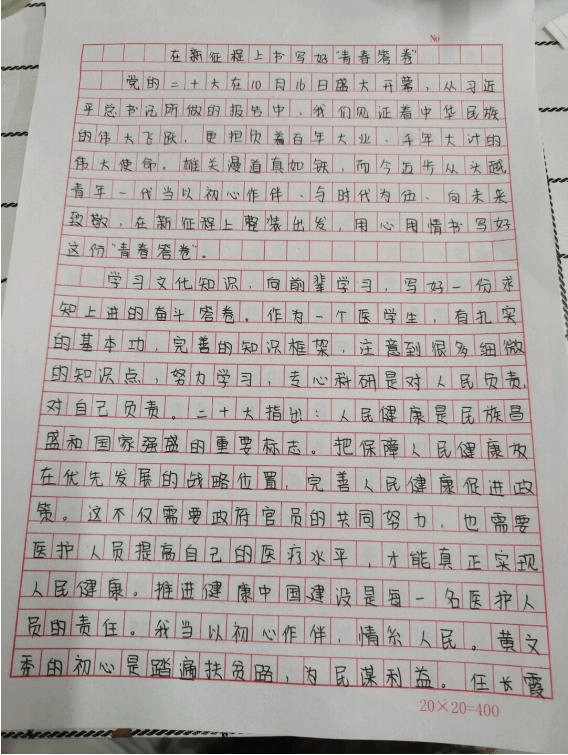 No
在新征程上书写好“青春答卷”
党的二十大在10月16日盛大开幕,从习近
平总书记所做的报告中,我们见证着中华民族
的伟大飞跃,更担负着百年大业、千年大计的
伟大使命。雄关漫道真如铁,而今迈步从头越
青年一代当以初心作伴、与时代为伍、向未来
致敬,在新征程上整装出发,用心用情书写好
这份“青春答卷”。
学习文化知识,向前辈学习,写好一份求
知上进的奋斗答卷。作为一个医学生,有扎实
的基本功,完善的知识框架,注意到很多细微
的知识点,努力学习,专心科研是对人民负责,
对自己负责。二十大指出:人民健康是民族昌
盛和国家强盛的重要标志。把保障人民健康放
在优先发展的战略位置,完善人民健康促进政
策。这不仅需要政府官员的共同努力,也需要
医护人员提高自己的医疗水平,才能真正实现
人民健康。推进健康中国建设是每一名医护人
员的责任。我当以初心作伴,情系人民。黄文
秀的初心是踏遍扶贫路,为民谋利益。任长霞
20×20=400